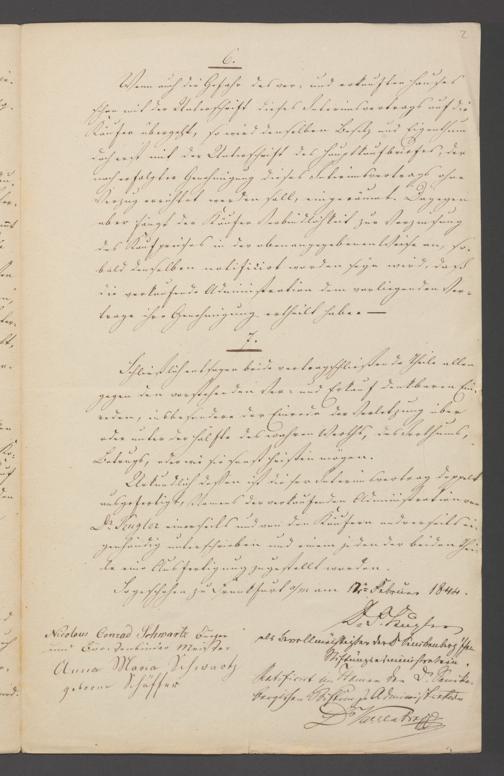 2
6.
Wenn auch die Gefahr des ver- und erkauften Hauses
schon mit der Unterschrift dieses Interimsvertrags auf die
Käufer übergeht, so wird denselben Besitz und Eigenthum
doch erst mit der Unterschrift des Hauptkaufbriefes, der
nach erfolgter Genehmigung dieses Interimsvertrags ohne
Verzug errichtet werden soll, eingeräumt. Dagegen
aber fängt der Käufer Verbindlichkeit zur Verzinsung
des Kaufpreises in der oben angegebenen Weise an, so-
bald denselben notificirt worden seyn wird, daß
die verkaufende Administration dem vorliegenden Ver-
trage ihre Genehmigung ertheilt habe. —
7.
Schließlich entsagen beide vertragschließende Theile allen
gegen den vorstehenden Ver- und Erkauf denkbaren Ein-
reden, insbesondere der Einrede der Verletzung über
oder unter der Hälfte des wahren Werths, des Irrthums,
Betrugs, oder wie sie sonst heißen mögen.
Urkundlich dessen ist dieser Interimsvertrag doppelt
ausgefertigt, Namens der verkaufenden Administration von
Dr. Kugler einerseits und von den Käufern andererseits ei-
genhändig unterschrieben und einem jeden der beiden Thei-
le eine Ausfertigung zugestellt worden.
So geschehen zu Frankfurt a/m am Februar 1844.
Nicolaus Conrad Schwartz Bürger
und Meister
Anna Maria Schwartz
geborne Schäffer
Dr. Kugler
als Bevollmächtigter der Dr. Senkenberg'schen
Stiftungsadministration.
Ratificirt im Namen der Dr. Senken-
bergischen Stiftungs Administration
Dr.